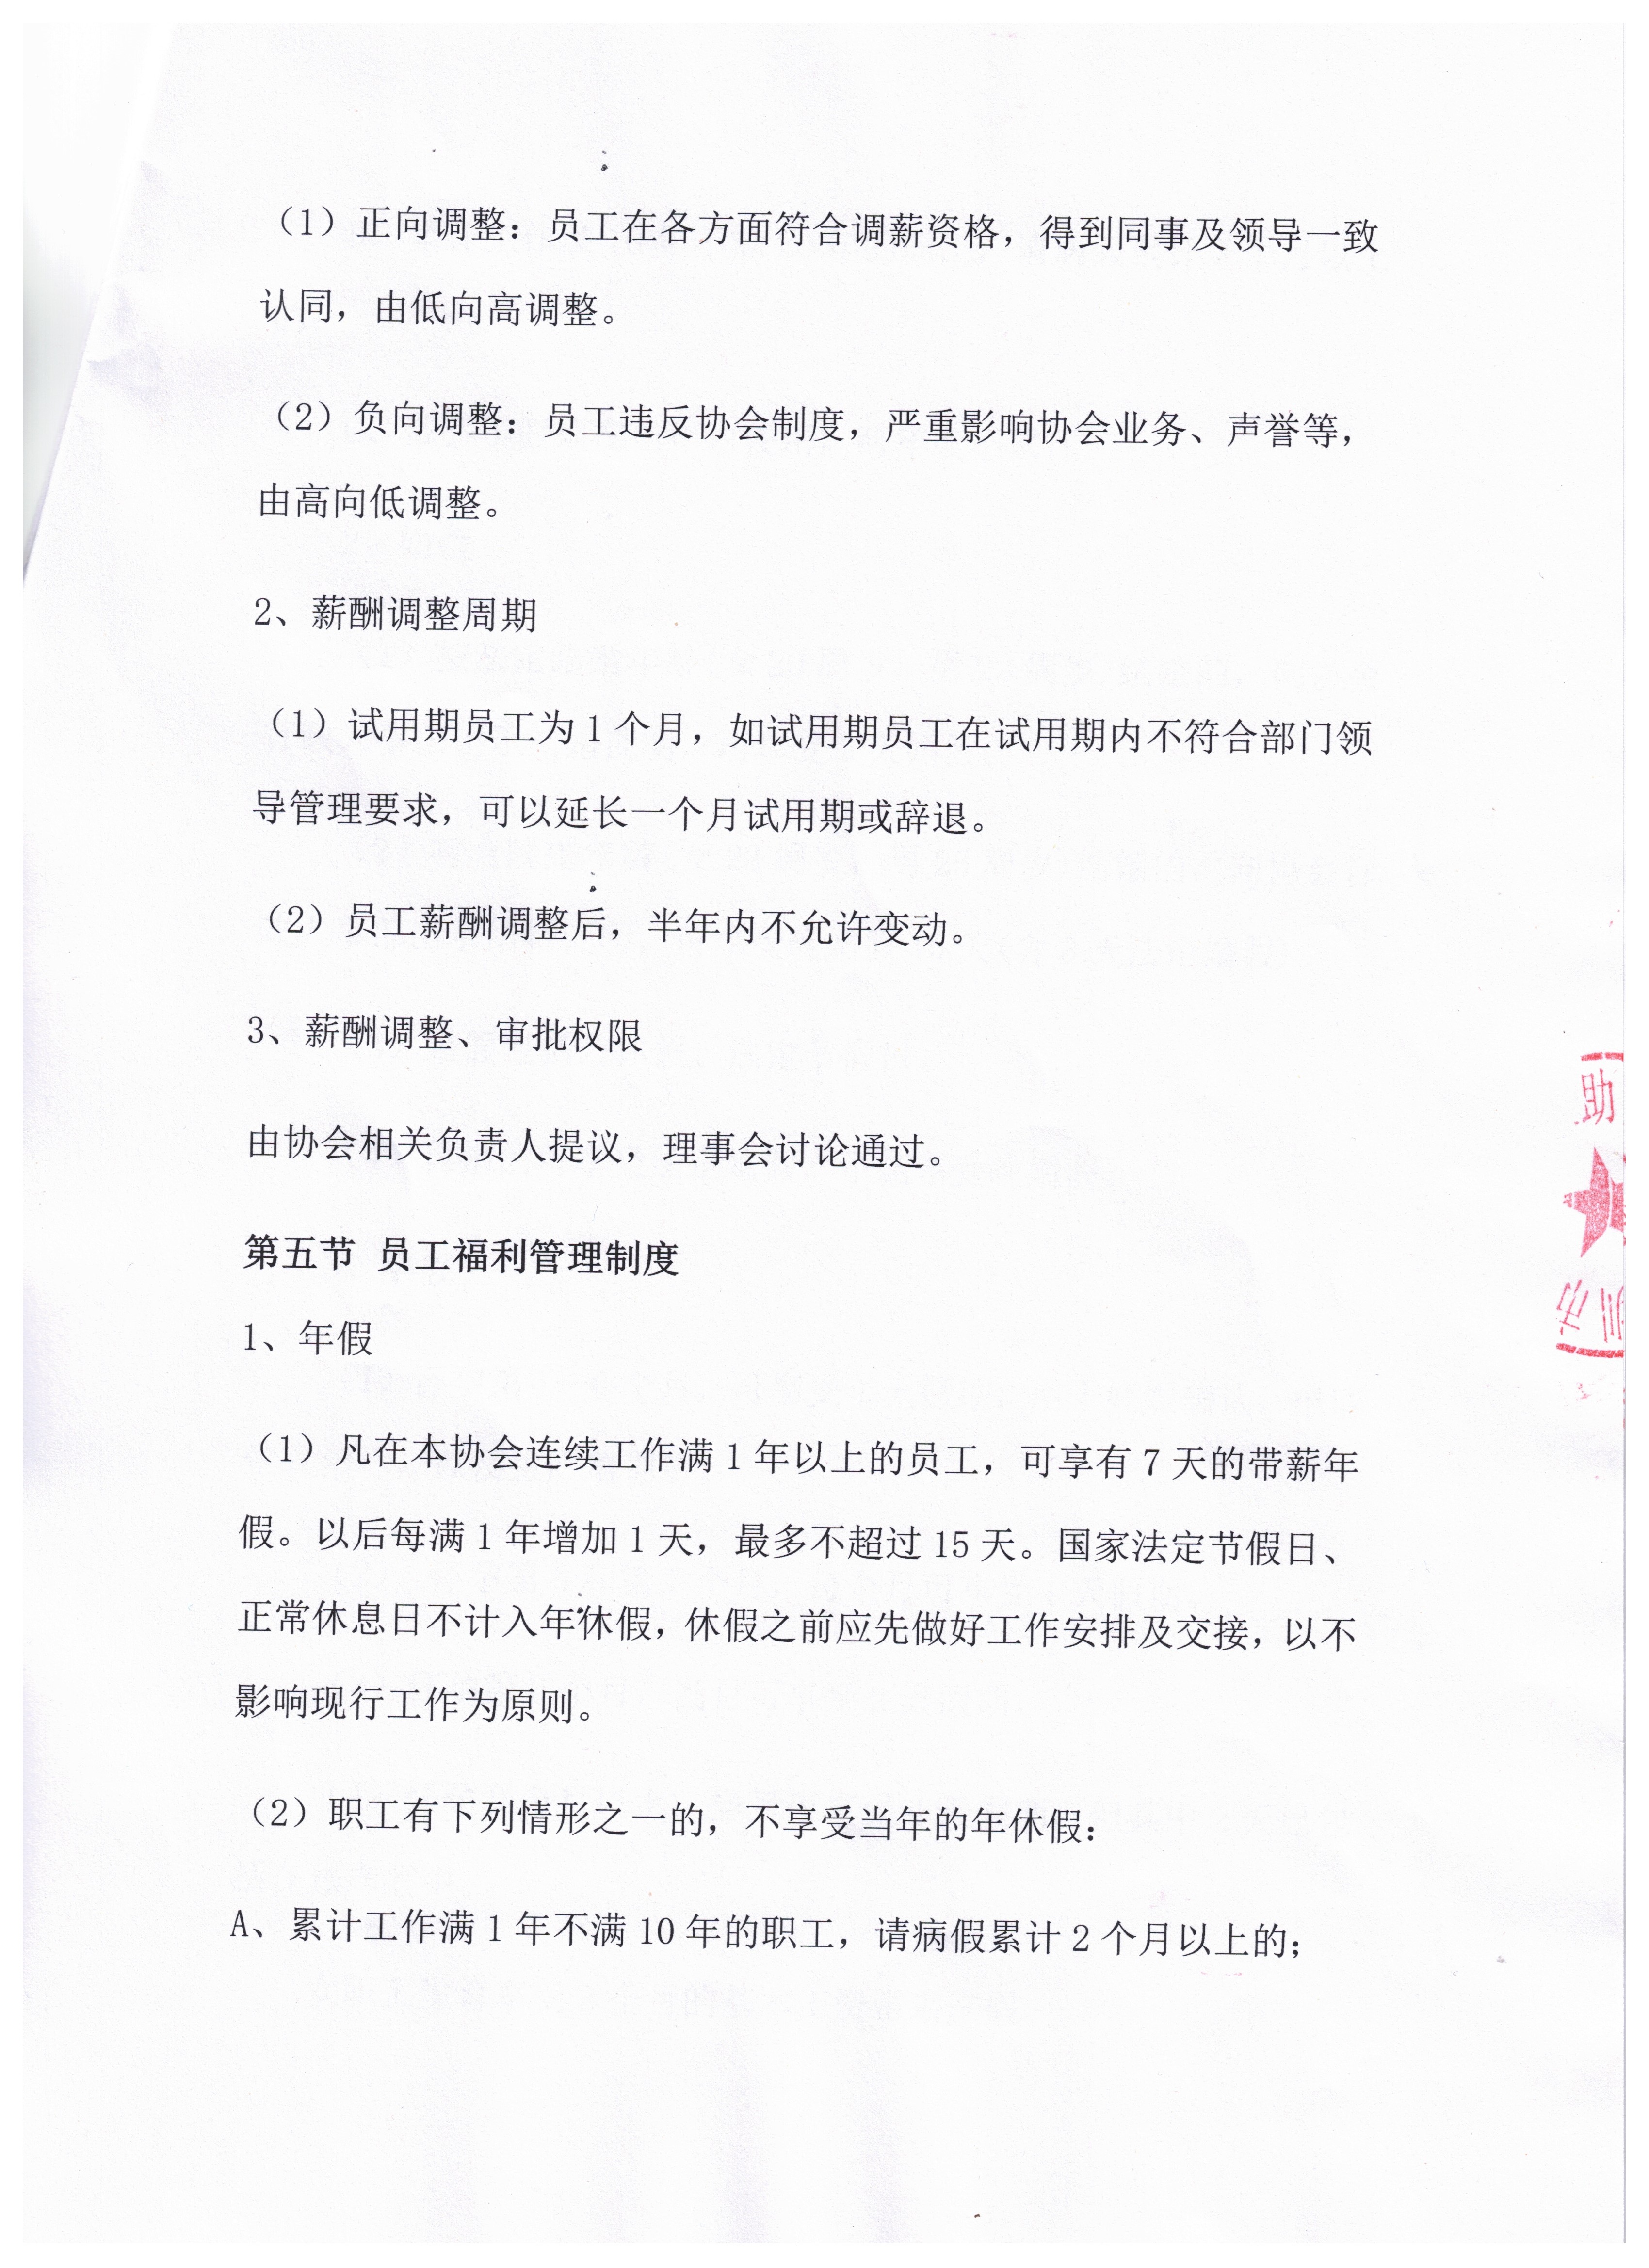 （1）正向调整：员工在各方面符合调薪资格，得到同事及领导一致
认同，由低向高调整。
（2）负向调整：员工违反协会制度，严重影响协会业务、声誉等，
由高向低调整。
2、薪酬调整周期
（1）试用期员工为 1 个月，如试用期员工在试用期内不符合部门领
导管理要求，可以延长一个月试用期或辞退。
（2）员工薪酬调整后，半年内不允许变动。
3、薪酬调整、审批权限
由协会相关负责人提议，理事会讨论通过。
第五节 员工福利管理制度
1、年假
（1）凡在本协会连续工作满 1 年以上的员工，可享有 7 天的带薪年
假。以后每满 1 年增加 1 天，最多不超过 15 天。国家法定节假日、
正常休息日不计入年休假，休假之前应先做好工作安排及交接，以不
影响现行工作为原则。
（2）职工有下列情形之一的，不享受当年的年休假：
A、累计工作满 1 年不满 10 年的职工，请病假累计 2 个月以上的；
助